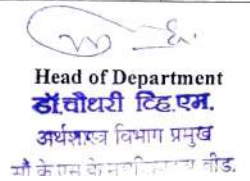 Head of Department
डॉ.चौधरी व्हि.एम.
अर्थशास्त्र विभाग प्रमुख
सौ के एस के बीड.